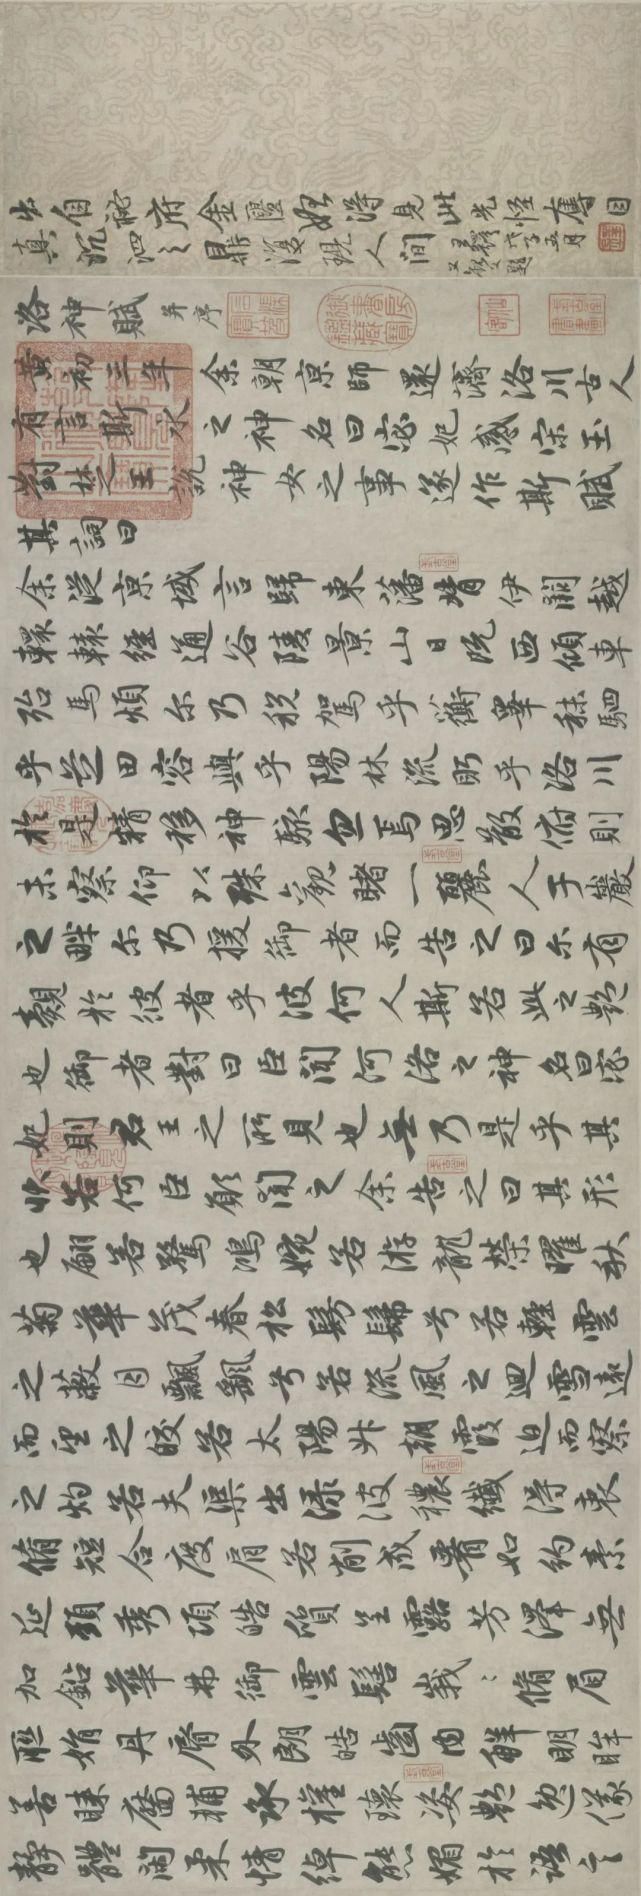 出自秘府金匱始得見此光怪奪目
真沉泗之鼎復現人間
王鐸戊子五月
洛神賦并序
黃初三年余朝京師還濟洛川古人
有言斯水之神名曰宓妃感宋玉
對楚王說神女之事遂作斯賦
其詞曰
余從京域言歸東藩背伊闕越
轘轅經通谷陵景山日既西傾車
殆馬煩尔乃稅駕乎蘅皋秣駟
乎芝田容與乎陽林流眄乎洛川
於是精移神駭忽焉思散俯則
未察仰以殊觀睹一麗人于巖
之畔尔乃援御者而告之曰尔有
覿於彼者乎彼何人斯若此之艷
也御者對曰臣聞河洛之神名曰宓
妃則君王之所見也無乃是乎其
狀若何臣願聞之余告之曰其形
也翩若驚鴻婉若游龍榮曜秋
菊華茂春松髣髴兮若輕雲
之蔽月飄飖兮若流風之迴雪遠
而望之皎若太陽升朝霞迫而察
之灼若夫渠出淥波穠纖得衷
脩短合度肩若削成署如約素
延頸秀項皓質呈露芳澤無
加鉛華弗御雲髻峩〻脩眉
聯娟丹脣外朗皓齒內鮮明眸
善睞靨輔承權瓌姿艷逸儀
靜體閑柔情綽態媚於語言